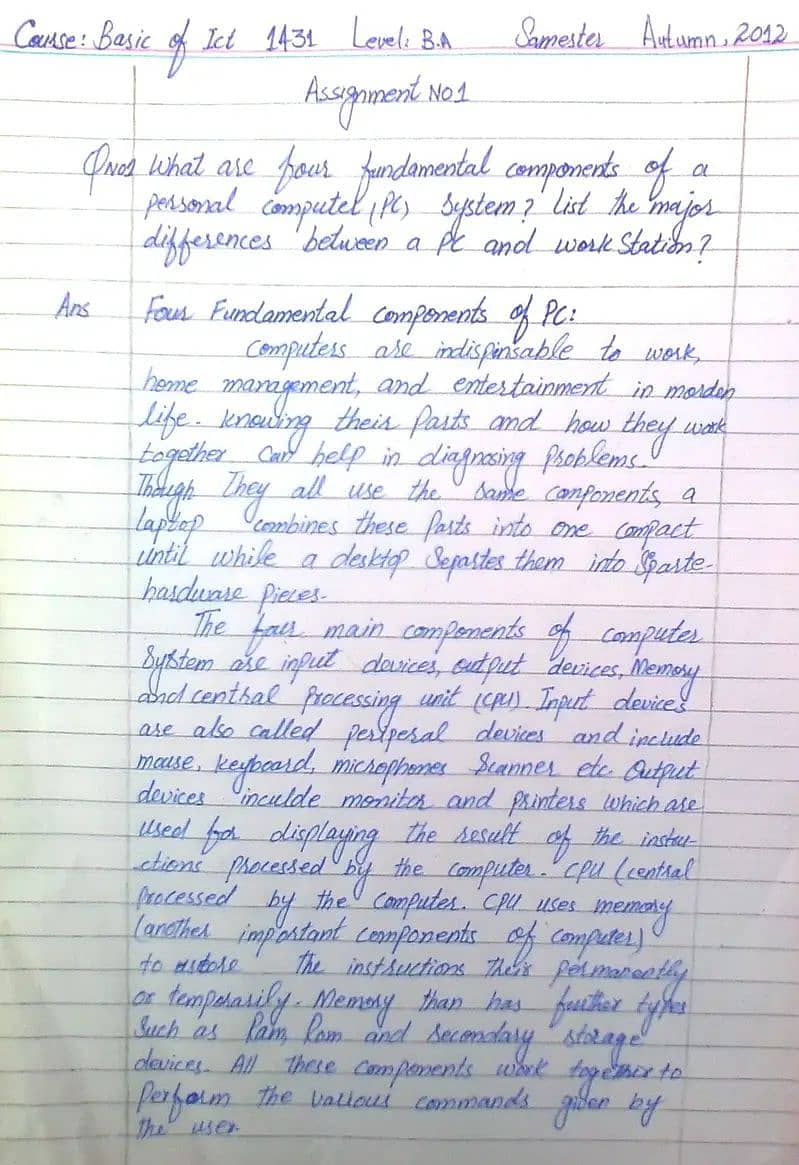 Course: Basic of Ict 1431 Level: B.A Samester Autumn, 2012
Assignment No1
QNo1 What are four fundamental components of a
personal computer (PC) system? List the major
differences between a PC and work Station?
Ans Four Fundamental components of PC:
Computers are indispinsable to work,
home management, and entertainment in morden
life. knowing their Parts and how they work
together Can help in diagnosing Problems.
Though They all use the same components, a
laptop combines these Parts into one compact
until while a desktop Separtes them into Sparte-
hardware Pieces.
The four main components of computer
System are input davices, output devices, Memory
and central Processing unit (CPU). Input devices
are also called periperal devices and include
mouse, keyboard, microphones Scanner etc. Output
devices inculde monitor and printers which are
used for displaying the result of the instru-
ctions Processed by the computer. CPU (central
Processed by the computer. CPU uses memory
(another important components of computer)
to the instructions Their permanently
or temporarily. Memory than has further types
Such as Ram, Rom and secondary storage
devices. All These components work together to
Perform the various commands given by
The user.